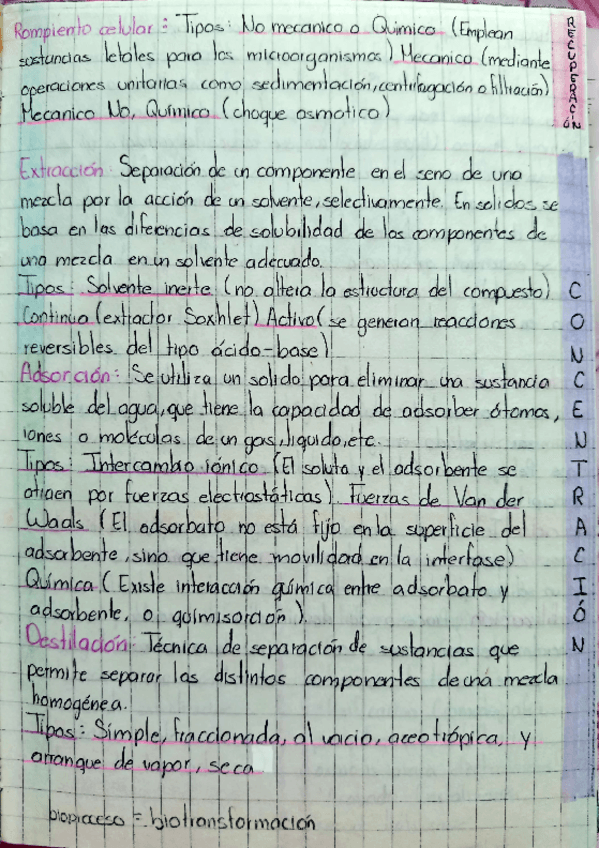 Rompiento celular: Tipos: No mecanico o Quimico (Emplean
sustancias letales para los microorganismos) Mecanico (mediante
operaciones unitarias como sedimentación, centrifugación o filtración)
Mecanico No, Químico (choque osmotico)
RECUPERACIÓN
Extracción: Separación de un componente en el seno de una
mezcla por la acción de un solvente, selectivamente. En solidos se
basa en las diferencias de solubilidad de los componentes de
una mezcla en un solvente adecuado.
Tipos: Solvente inerte (no altera la estructura del compuesto)
Continuo (extractor Soxhlet) Activo (se generan reacciones
reversibles del tipo ácido-base)
Adsorción: Se utiliza un solido para eliminar una sustancia
soluble del agua, que tiene la capacidad de adsorber átomos,
iones o moléculas de un gas, liquido, etc.
Tipos: Intercambio iónico (El soluto y el adsorbente se
atraen por fuerzas electrostáticas). Fuerzas de Van der
Waals (El adsorbato no está fijo en la superficie del
adsorbente, sino que tiene movilidad en la interfase)
Química (Existe interacción química entre adsorbato y
adsorbente, o quimisorción).
Destilación: Técnica de separación de sustancias que
permite separar los distintos componentes de una mezcla
homogénea.
Tipos: Simple, fraccionada, al vacio, aceotrópica, y
arranque de vapor, seca
CONCENTRACIÓN
bioproceso = biotransformación